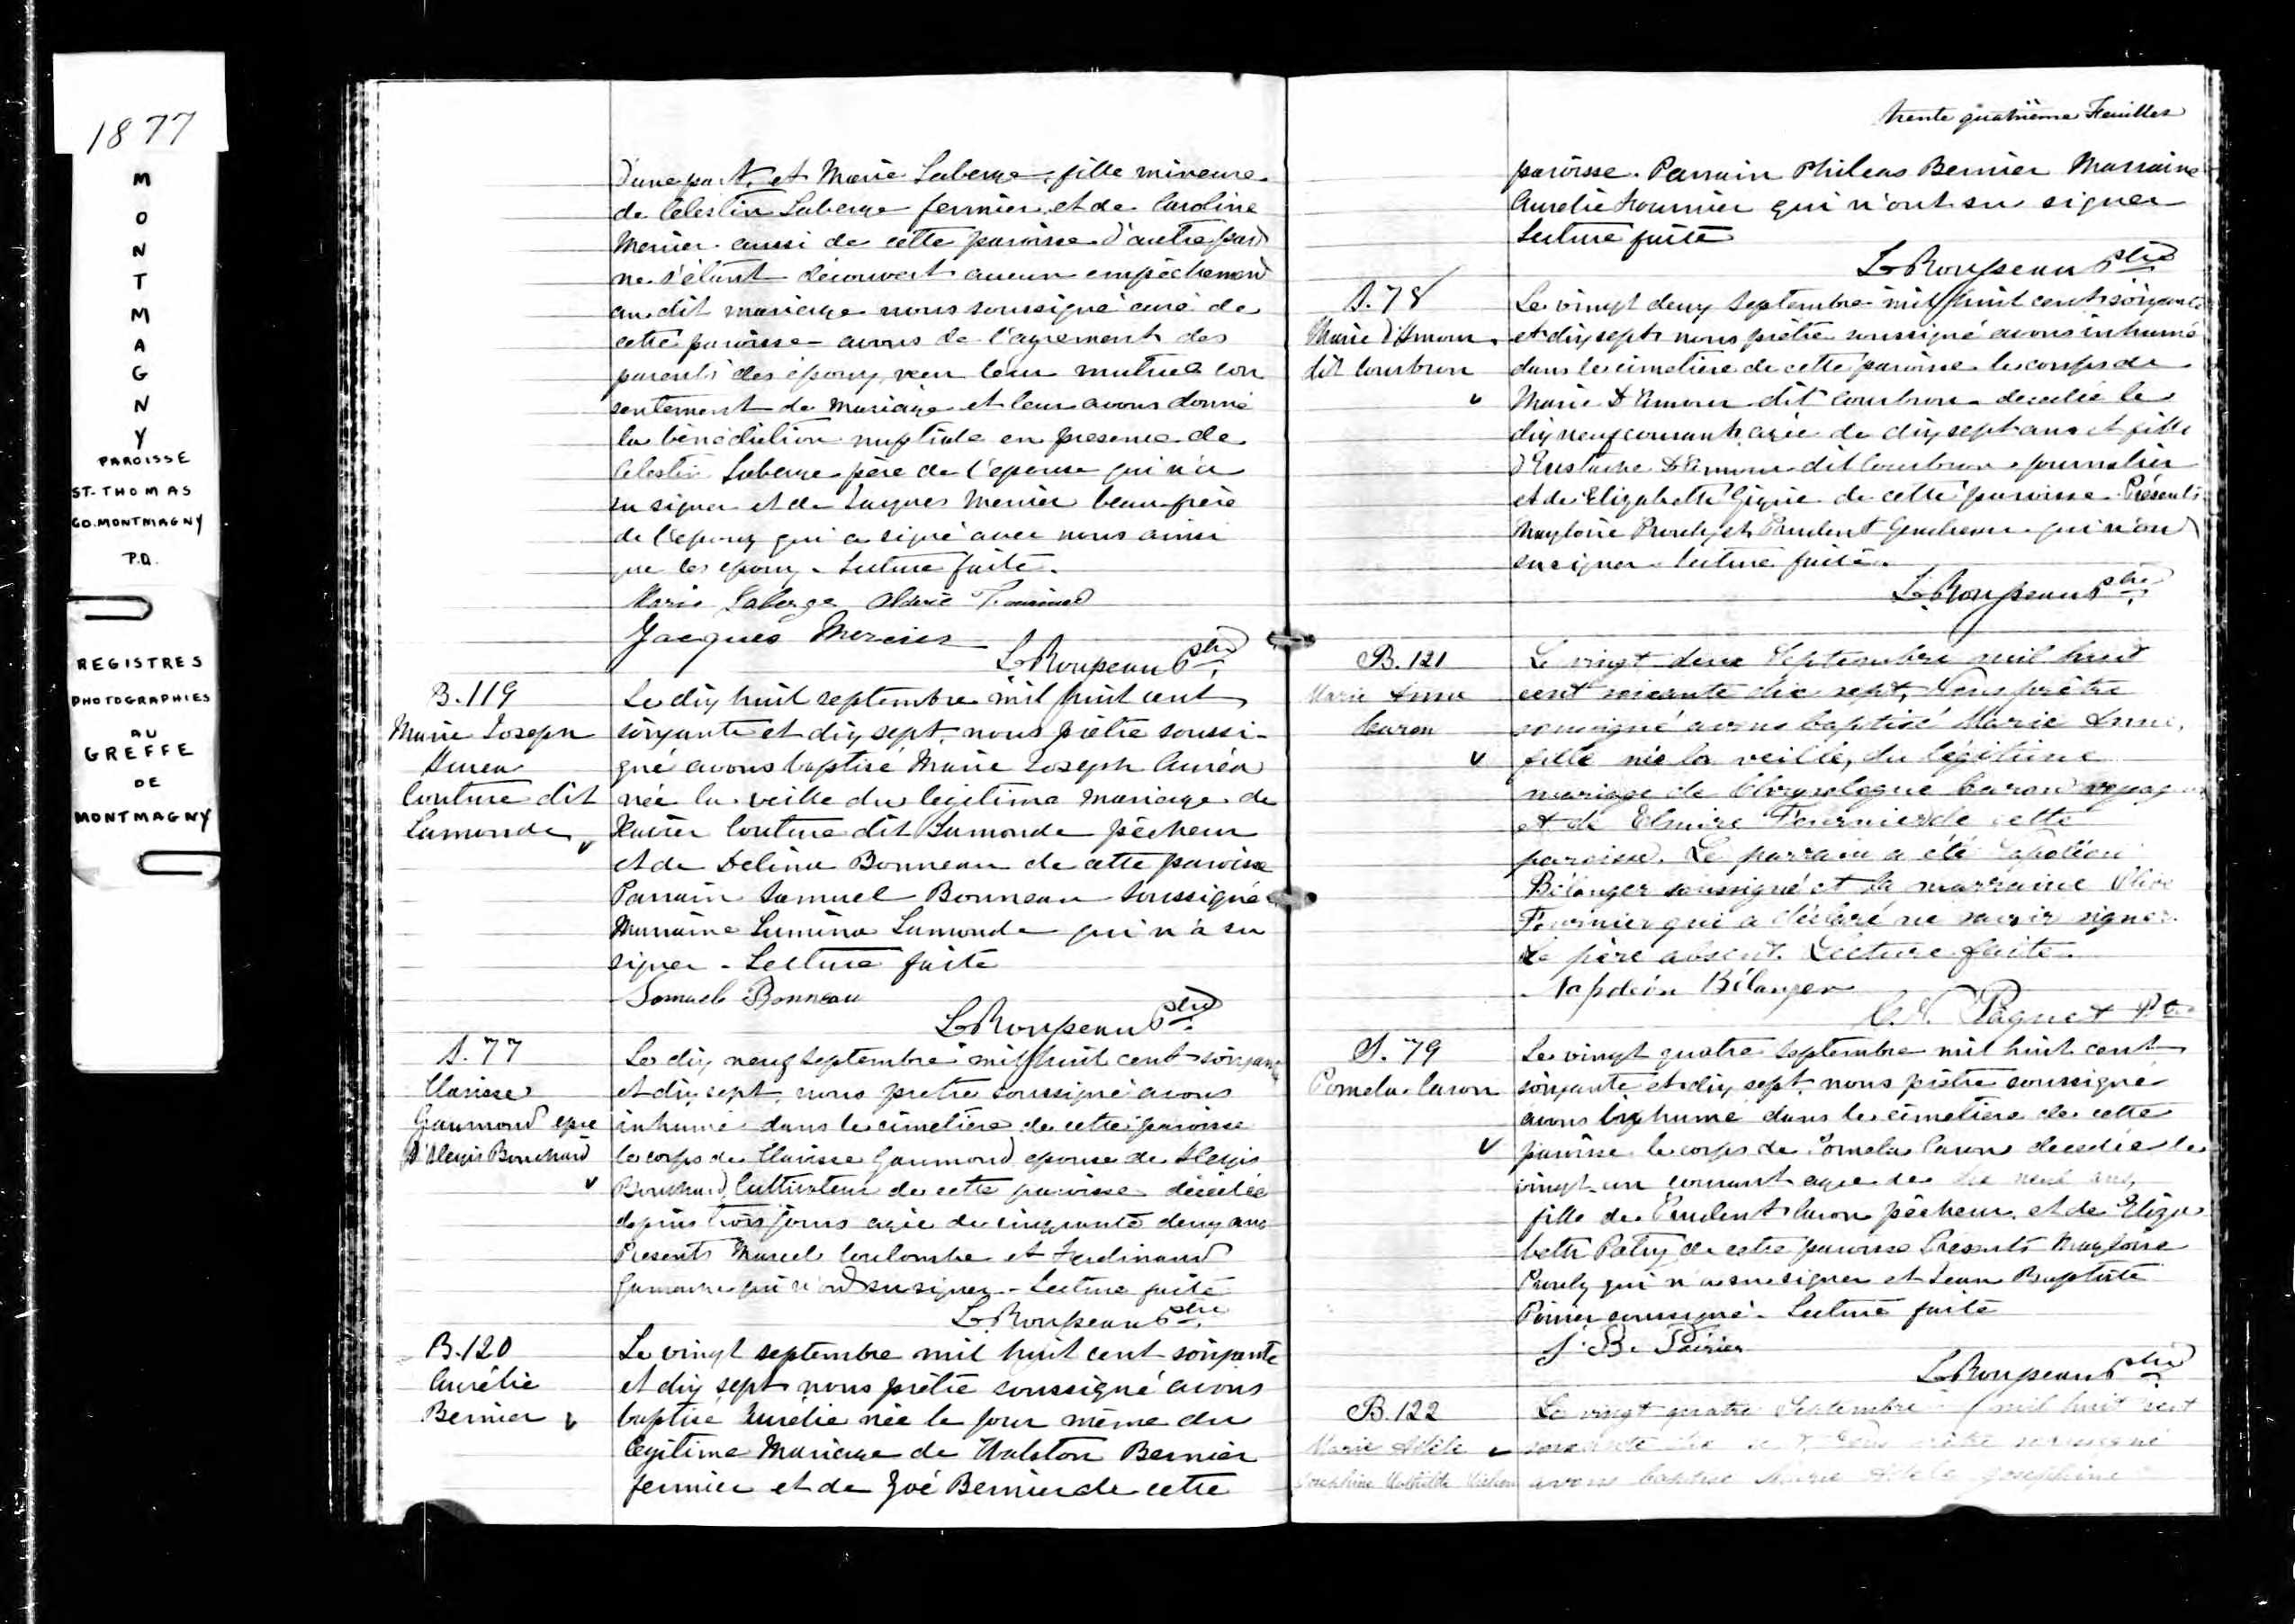 1877
MONTMAGNY
PAROISSE
ST-THOMAS
CO. MONTMAGNY
P.Q.
REGISTRES
PHOTOGRAPHIES
AU
GREFFE
DE
MONTMAGNY
d'une part, et Marie Laberge, fille mineure
de Celestin Laberge fermier et de Caroline
Mercier aussi de cette paroisse d'autre part
ne s'étant découvert aucun empêchement
au dit mariage nous soussigné curé de
cette paroisse avons de l'agrement des
parents des époux, reçu leur mutuel con
sentement de Mariage et leur avons donné
la bénédiction nuptiale en presence de
Celestin Laberge père de l'epouse qui n'a
su signer et de Jacques Mercier beaufrère
de l'epoux qui a signé avec nous ainsi
que les epoux. Lecture faite.
Marie Laberge
Jacques Mercier
L. Roupeau Ptre
B. 119
Marie Joseph
Aurea
Couture dit
Lamonde
Le dix huit septembre mil huit cent
soixante et dix sept, nous prêtre soussi-
gné avons baptisé Marie Joseph Auréa
née la veille du legitime mariage de
Xavier Couture dit Lamonde pêcheur
et de Delina Bonneau de cette paroisse
Parrain Samuel Bonneau soussigné
Marraine Lumina Lamonde qui n'a su
signer. Lecture faite
Samuel Bonneau
L. Roupeau Ptre
S. 77
Clarisse
Gaumond epse
d'Alexis Bouchard
Le dix neuf septembre mil huit cent soixante
et dix sept, nous pretre soussigné avons
inhumé dans le cimetière de cette paroisse
le corps de Clarisse Gaumond epouse de Alexis
Bouchard Cultivateur de cette paroisse décédée
depuis trois jours agée de cinquante deux ans
Presents Marcel Coulombe et Ferdinand
qui n'ont su signer. Lecture faite
L. Roupeau Ptre
B. 120
Aurélie
Bernier
Le vingt septembre mil huit cent soixante
et dix sept nous prêtre soussigné avons
baptisé Aurélie née le jour même du
legitime Mariage de Walston Bernier
fermier et de Zoé Bernier de cette
trente quatrième Feuillet
paroisse. Parrain Phileas Bernier Marraine
Aurelie Fournier qui n'ont su signer
Lecture faite
L. Roupeau Ptre
S. 78
Marie d'Amour
dit Courbron
Le vingt deux septembre mil huit cent soixante
et dix sept nous prêtre soussigné avons inhumé
dans le cimetière de cette paroisse le corps de
Marie D'Amour dit Courbron decedée le
dix neuf courant, agée de dix sept ans et fille
d'Eustache D'Amour dit Courbron journalier
et de Elizabeth de cette paroisse. Présents
Magloire Proulx et Prudent Gendreau qui n'ont
su signer. Lecture faite.
L. Roupeau Ptre
B. 121
Marie Anna
Caron
Le vingt deux Septembre mil huit
cent soixante dix sept, Nous prêtre
soussigné avons baptisé Marie Anna,
fille née la veille, du légitime
mariage de Chrysologue Caron
et de Elmire Fournier de cette
paroisse. Le parrain a été Napoléon
Bélanger soussigné et la marraine
Fournier qui a déclaré ne savoir signer.
Le père absent. Lecture faite.
Napoléon Bélanger
Paquet Ptre
S. 79
Pomela Caron
Le vingt quatre septembre mil huit cent
soixante et dix sept, nous prêtre soussigné
avons inhumé dans le cimetière de cette
paroisse le corps de Pomela Caron decedée le
vingt-un courant agée de neuf ans,
fille de Prudent Caron pêcheur et de Eliza
beth Patry de cette paroisse Presents Magloire
Proulx qui n'a su signer et Jean Baptiste
Poirier soussigné. Lecture faite
J. B. Poirier
L. Roupeau Ptre
B. 122
Marie Adèle
Joséphine Mathilde
Le vingt quatre Septembre mil huit cent
soixante dix sept, Nous prêtre soussigné
avons baptisé Marie Adèle Joséphine